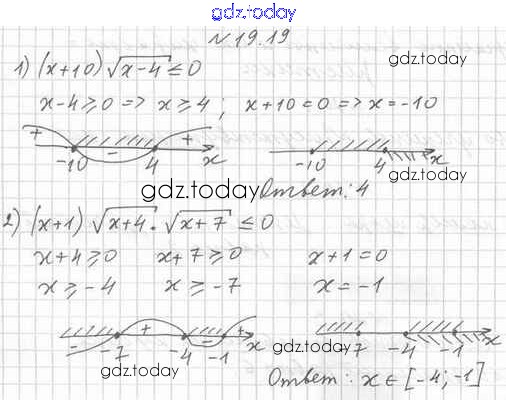 gdz.today
№19.19
gdz.today
1) (x+10) √(x-4) ≤ 0
x-4 ≥ 0 => x ≥ 4 ; x+10 = 0 => x = -10
+ - + -10 4 x -10 4 x
gdz.today
gdz.today Ответ: 4
2) (x+1) √(x+4) · √(x+7) ≤ 0
x+4 ≥ 0 x+7 ≥ 0 x+1 = 0
x ≥ -4 x ≥ -7 x = -1
- + - + -7 -4 -1 x -7 -4 -1 x
gdz.today
gdz.today
Ответ: x ∈ [-4; -1]